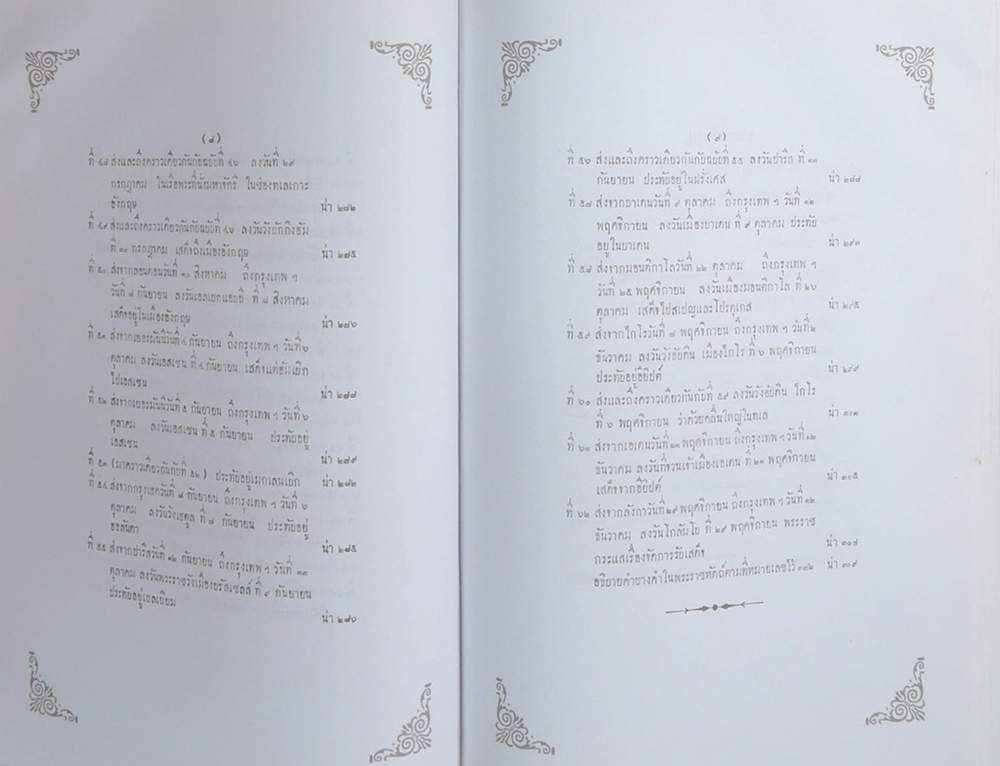 (๘)
ที่ ๔๘ ส่งและถึงคราวเดียวกันกับฉบับที่ ๔๖ ลงวันที่ ๒๙
กรกฎาคม ในเรือพระที่นั่งมหาจักรี ในช่องทเลเกาะ
อังกฤษ น่า ๒๗๒
ที่ ๔๙ ส่งและถึงคราวเดียวกันกับฉบับที่ ๔๖ ลงวันวังบักกิงฮัม
ที่ ๓๐ กรกฎาคม เสด็จถึงเมืองอังกฤษ น่า ๒๗๕
ที่ ๕๐ ส่งจากลอนดอนวันที่ ๑๐ สิงหาคม ถึงกรุงเทพ ฯ
วันที่ ๘ กันยายน ลงวันเอลเอกแอบบี ที่ ๘ สิงหาคม
เสด็จอยู่ในเมืองอังกฤษ น่า ๒๗๖
ที่ ๕๑ ส่งจากเยอรมันนีวันที่ ๔ กันยายน ถึงกรุงเทพ ฯ วันที่ ๖
ตุลาคม ลงวันเอสเซน ที่ ๔ กันยายน เสด็จแต่ฮัมเบิก
ไปเอสเซน น่า ๒๗๗
ที่ ๕๒ ส่งจากเยอรมันนีวันที่ ๕ กันยายน ถึงกรุงเทพ ฯ วันที่ ๖
ตุลาคม ลงวันเอสเซน ที่ ๕ กันยายน ประทับอยู่
เอสเซน น่า ๒๗๙
ที่ ๕๓ (มาคราวเดียวกันกับที่ ๕๒) ประทับอยู่เมกเลนเบิก น่า ๒๘๒
ที่ ๕๔ ส่งจากกรุงเฮควันที่ ๘ กันยายน ถึงกรุงเทพ ฯ วันที่ ๖
ตุลาคม ลงวันวังเฮตลู ที่ ๗ กันยายน ประทับอยู่
ฮอลันดา น่า ๒๘๕
ที่ ๕๕ ส่งจากปารีสวันที่ ๑๒ กันยายน ถึงกรุงเทพ ฯ วันที่ ๑๓
ตุลาคม ลงวันพระราชวังเมืองบรัสเซลส์ ที่ ๙ กันยายน
ประทับอยู่เบลเยียม น่า ๒๘๖
(๙)
ที่ ๕๖ ส่งและถึงคราวเดียวกันกับฉบับที่ ๕๕ ลงวันปารีส ที่ ๑๑
กันยายน ประทับอยู่ในฝรั่งเศส น่า ๒๘๘
ที่ ๕๗ ส่งจากบาเดนวันที่ ๙ ตุลาคม ถึงกรุงเทพ ฯ วันที่ ๑๒
พฤศจิกายน ลงวันเมืองบาเดน ที่ ๙ ตุลาคม ประทับ
อยู่ในบาเดน น่า ๒๙๓
ที่ ๕๘ ส่งจากมอนติกาโลวันที่ ๒๒ ตุลาคม ถึงกรุงเทพ ฯ
วันที่ ๒๕ พฤศจิกายน ลงวันเมืองมอนติกาโล ที่ ๒๖
ตุลาคม เสด็จไปสเปญและโปรตุเกส น่า ๒๔๕
ที่ ๕๙ ส่งจากไกโรวันที่ ๘ พฤศจิกายน ถึงกรุงเทพ ฯ วันที่ ๒
ธันวาคม ลงวันวังอับดิน เมืองไกโร ที่ ๖ พฤศจิกายน
ประทับอยู่อียิปต์ น่า ๒๔๙
ที่ ๖๐ ส่งและถึงคราวเดียวกันกับที่ ๕๙ ลงวันวังอับดิน ไกโร
ที่ ๖ พฤศจิกายน ว่าด้วยคลื่นใหญ่ในทเล น่า ๓๐๑
ที่ ๖๑ ส่งจากเอเดนวันที่ ๒๑ พฤศจิกายน ถึงกรุงเทพ ฯ วันที่ ๑๒
ธันวาคม ลงวันที่จวนเจ้าเมืองเอเดน ที่ ๒๑ พฤศจิกายน
เสด็จจากอียิปต์ น่า ๓๐๕
ที่ ๖๒ ส่งจากลังกาวันที่ ๒๙ พฤศจิกายน ถึงกรุงเทพ ฯ วันที่ ๑๒
ธันวาคม ลงวันโกลัมโบ ที่ ๒๙ พฤศจิกายน พระราช
กระแสเรื่องจัดการรับเสด็จ น่า ๓๐๗
อธิบายคำบางคำในพระราชหัตถ์ตามที่หมายเลขไว้ ๓๓๒ น่า ๓๐๙